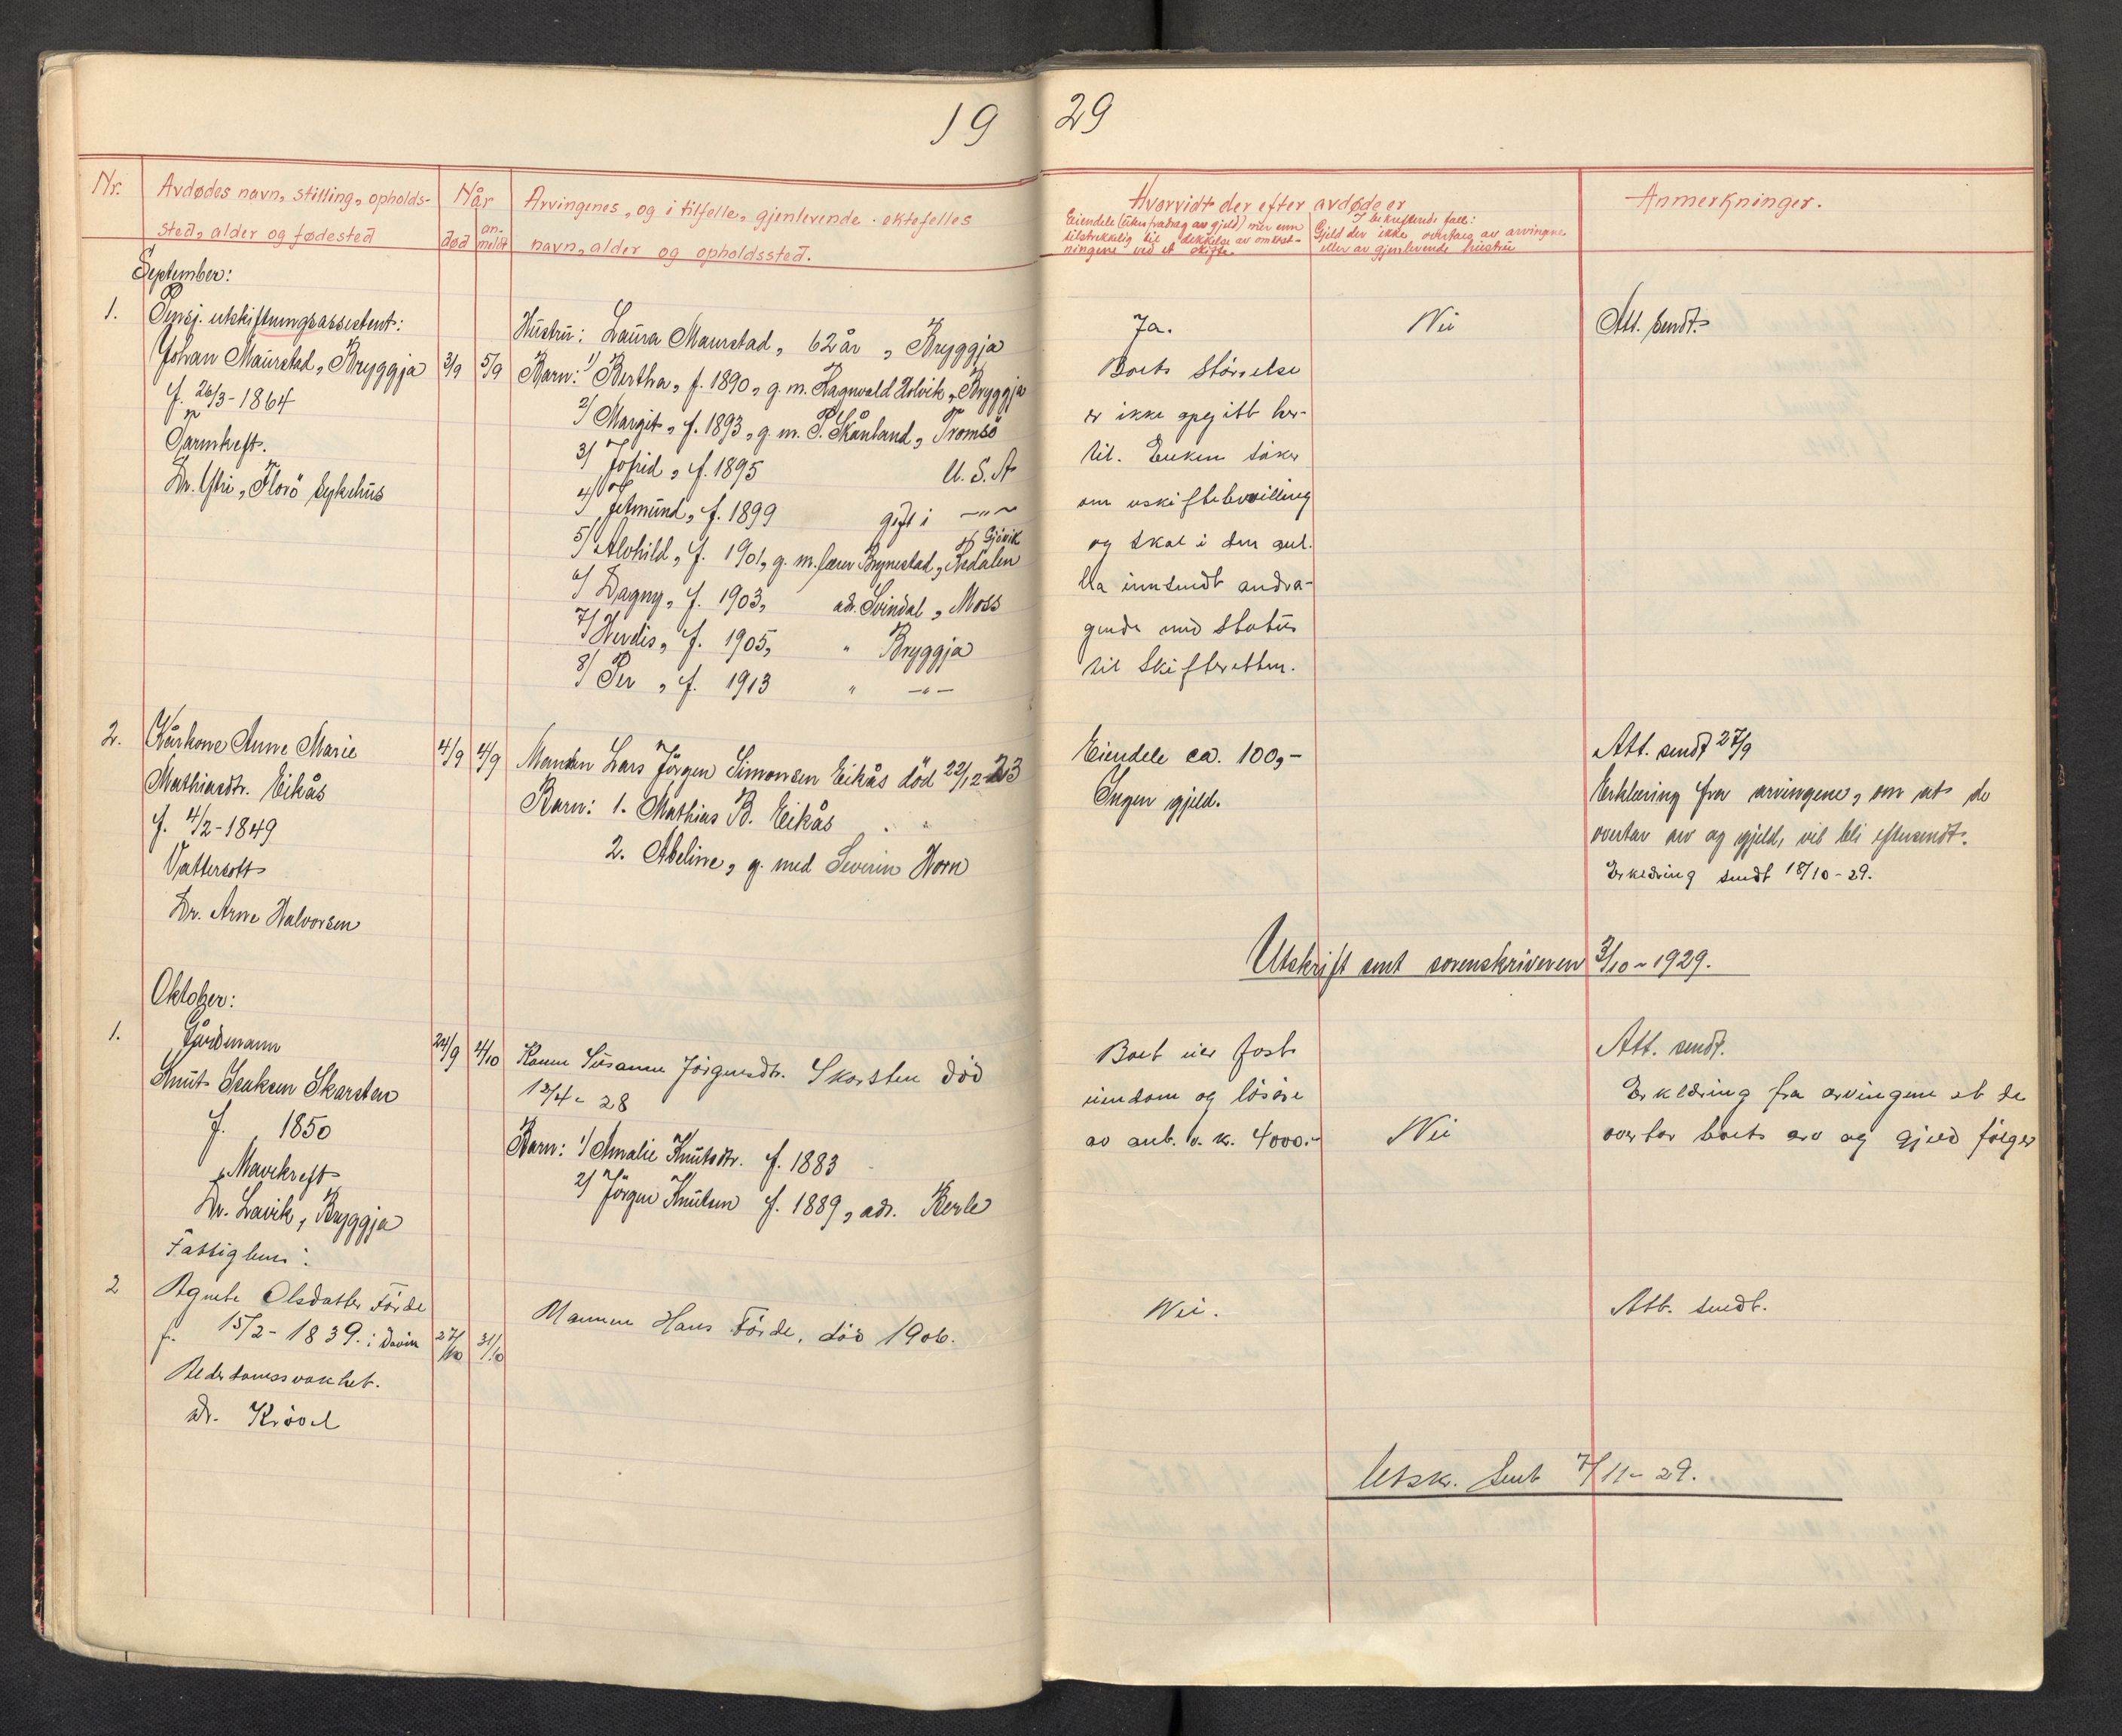 19 29
Nr.
Avdødes navn, stilling, opholds-
sted, alder og fødested
Når
død
an-
meldt
Arvingenes, og i tilfelle, gjenlevende ektefelles
navn, alder og opholdssted.
Hvorvidt der efter avdøde er
Eiendele (uten fradrag av gjeld) mer enn
tilstrekkelig til dekkelse av omkost-
ningene ved et skifte
I bekreftende fall:
Gjeld der ikke overtaes av arvingene
eller av gjenlevende hustru
Anmerkninger.
September:
1.
Pensj. utskiftningsassistent:
Johan Maurstad, Bryggja
f. 26/3-1864
Tarmkreft.
Dr. Ytri, Florö sykehus
3/9
5/9
Hustru: Laura Maurstad, 62 år, Bryggja
Barn: 1/ Bertha, f. 1890, g. m. Ragnvald Holvik, Bryggja
2/ Margit, f. 1893, g. m. P. Skånland, Tromsö
3/ Jofrid, f. 1895 U.S.A
4/ Jetmund, f. 1899 gift i —"—
5/ Alvhild, f. 1901, g. m. lærer Brynestad, Ardalen
6/ Dagny, f. 1903, ad. Svindal, Moss
7/ Herdis, f. 1905, " Bryggja
8/ Per, f. 1913 " —"—
Ja.
Boets størrelse
er ikke opgitt her-
til. Enken søker
om uskiftebevilling
og skal i den anl.
ha innsendt andra-
gende med status
til Skifteretten.
Nei
Att. sendt.
2.
Kårkone Anne Marie
Mathiasdtr. Eikås
f. 4/2-1849
Vattersott
Dr. Arne Halvorsen
4/9
4/9
Manden Lars Jörgen Simonsen Eikås död 22/12-23
Barn: 1. Mathias B. Eikås
2. Abeline, g. med Severin Horn
Eiendele ca. 100,-
Ingen gjeld.
Att. sendt 27/9
Erklæring fra arvingene, om at de
overtar arv og gjeld, vil bli eftersendt.
Erklæring sendt 18/10-29.
Utskrift sent sorenskriveren 3/10-1929.
Oktober:
1.
Gårdmann
Knut Isaksen Skarsten
f. 1850
Mavekreft
Dr. Lavik, Bryggja
24/9
4/10
Kone Susanne Jörgensdtr. Skarsten död
12/4-28
Barn: 1/ Amalie Knutsdtr. f. 1883
2/ Jörgen Knutsen f. 1889, adr. Berle
Boet eier fast
eiendom og lösöre
av ant. v. kr. 4000.-
Nei
Att. sendt.
Erklæring fra arvingene at de
overtar boets arv og gjeld følger
Fattiglem:
2
Agnete Olsdatter Förde
f. 15/2-1839. i Davik
Alderdomssvakhet.
dr. Krövel
27/10
31/10
Mannen Hans Förde, död 1906.
Nei.
Att. sendt.
Utskr. sent 7/11-29.